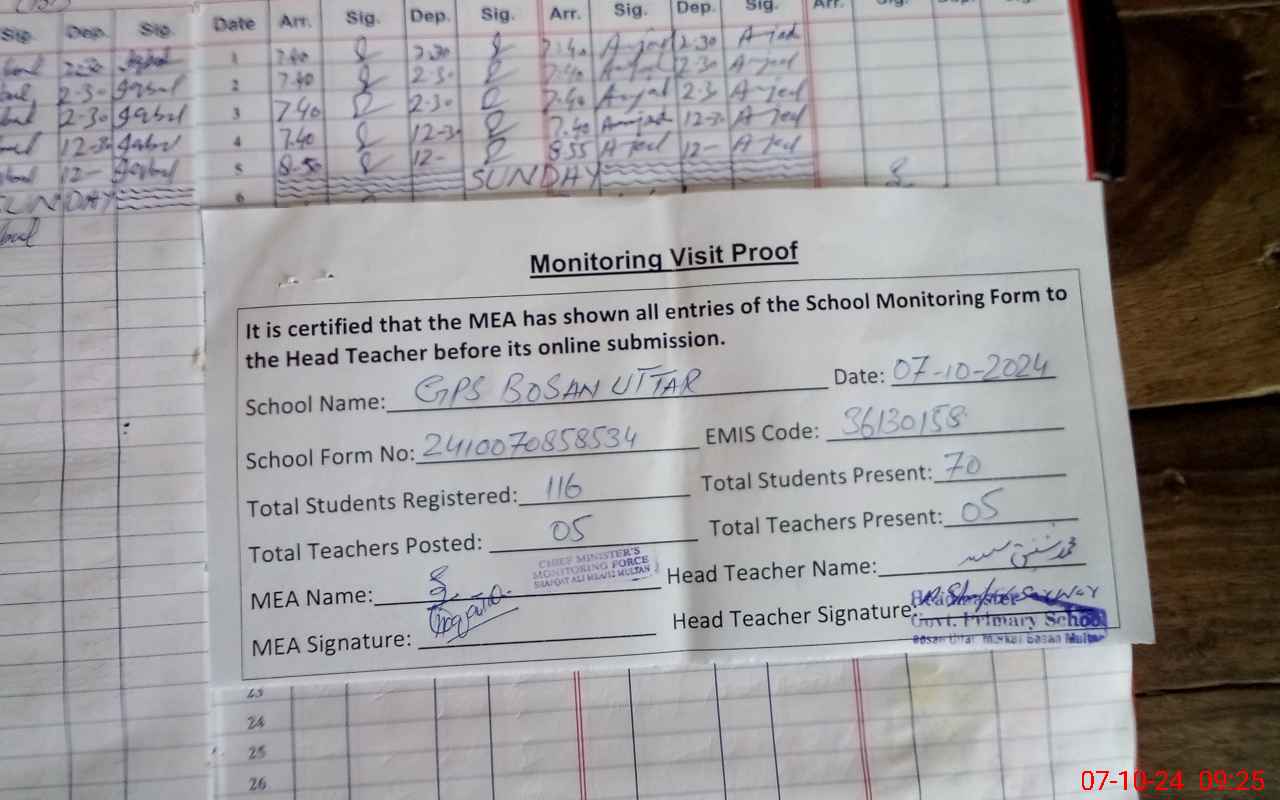 Sig. Dep. Sig. Date Arr. Sig. Dep. Sig. Arr. Sig. Dep. Sig. Arr.
1 7.40 2.30 7.40 Amjad 2.30 Amjad
2-30 Iqbal 2 7.40 2.30 7.40 Amjad 2.30 Amjad
2-30 Iqbal 3 7.40 2.30 7.40 Amjad 2.3 Amjad
12-30 Iqbal 4 7.40 12-30 7.40 Amjad 12-30 Amjad
12- Iqbal 5 8.50 12- 8.55 Amjad 12- Amjad
SUNDAY 6 SUNDAY
Monitoring Visit Proof
It is certified that the MEA has shown all entries of the School Monitoring Form to
the Head Teacher before its online submission.
School Name: GPS BOSAN UTTAR Date: 07-10-2024
School Form No: 2410070858534 EMIS Code: 36130158
Total Students Registered: 116 Total Students Present: 70
Total Teachers Posted: 05 Total Teachers Present: 05
CHIEF MINISTER'S
MONITORING FORCE
MEA Name: Head Teacher Name:
MEA Signature: Head Teacher Signature:
Headmaster
Govt. Primary School
Bosan Uttar Markaz Bosan Multan
23
24
25
26
07-10-24 09:25